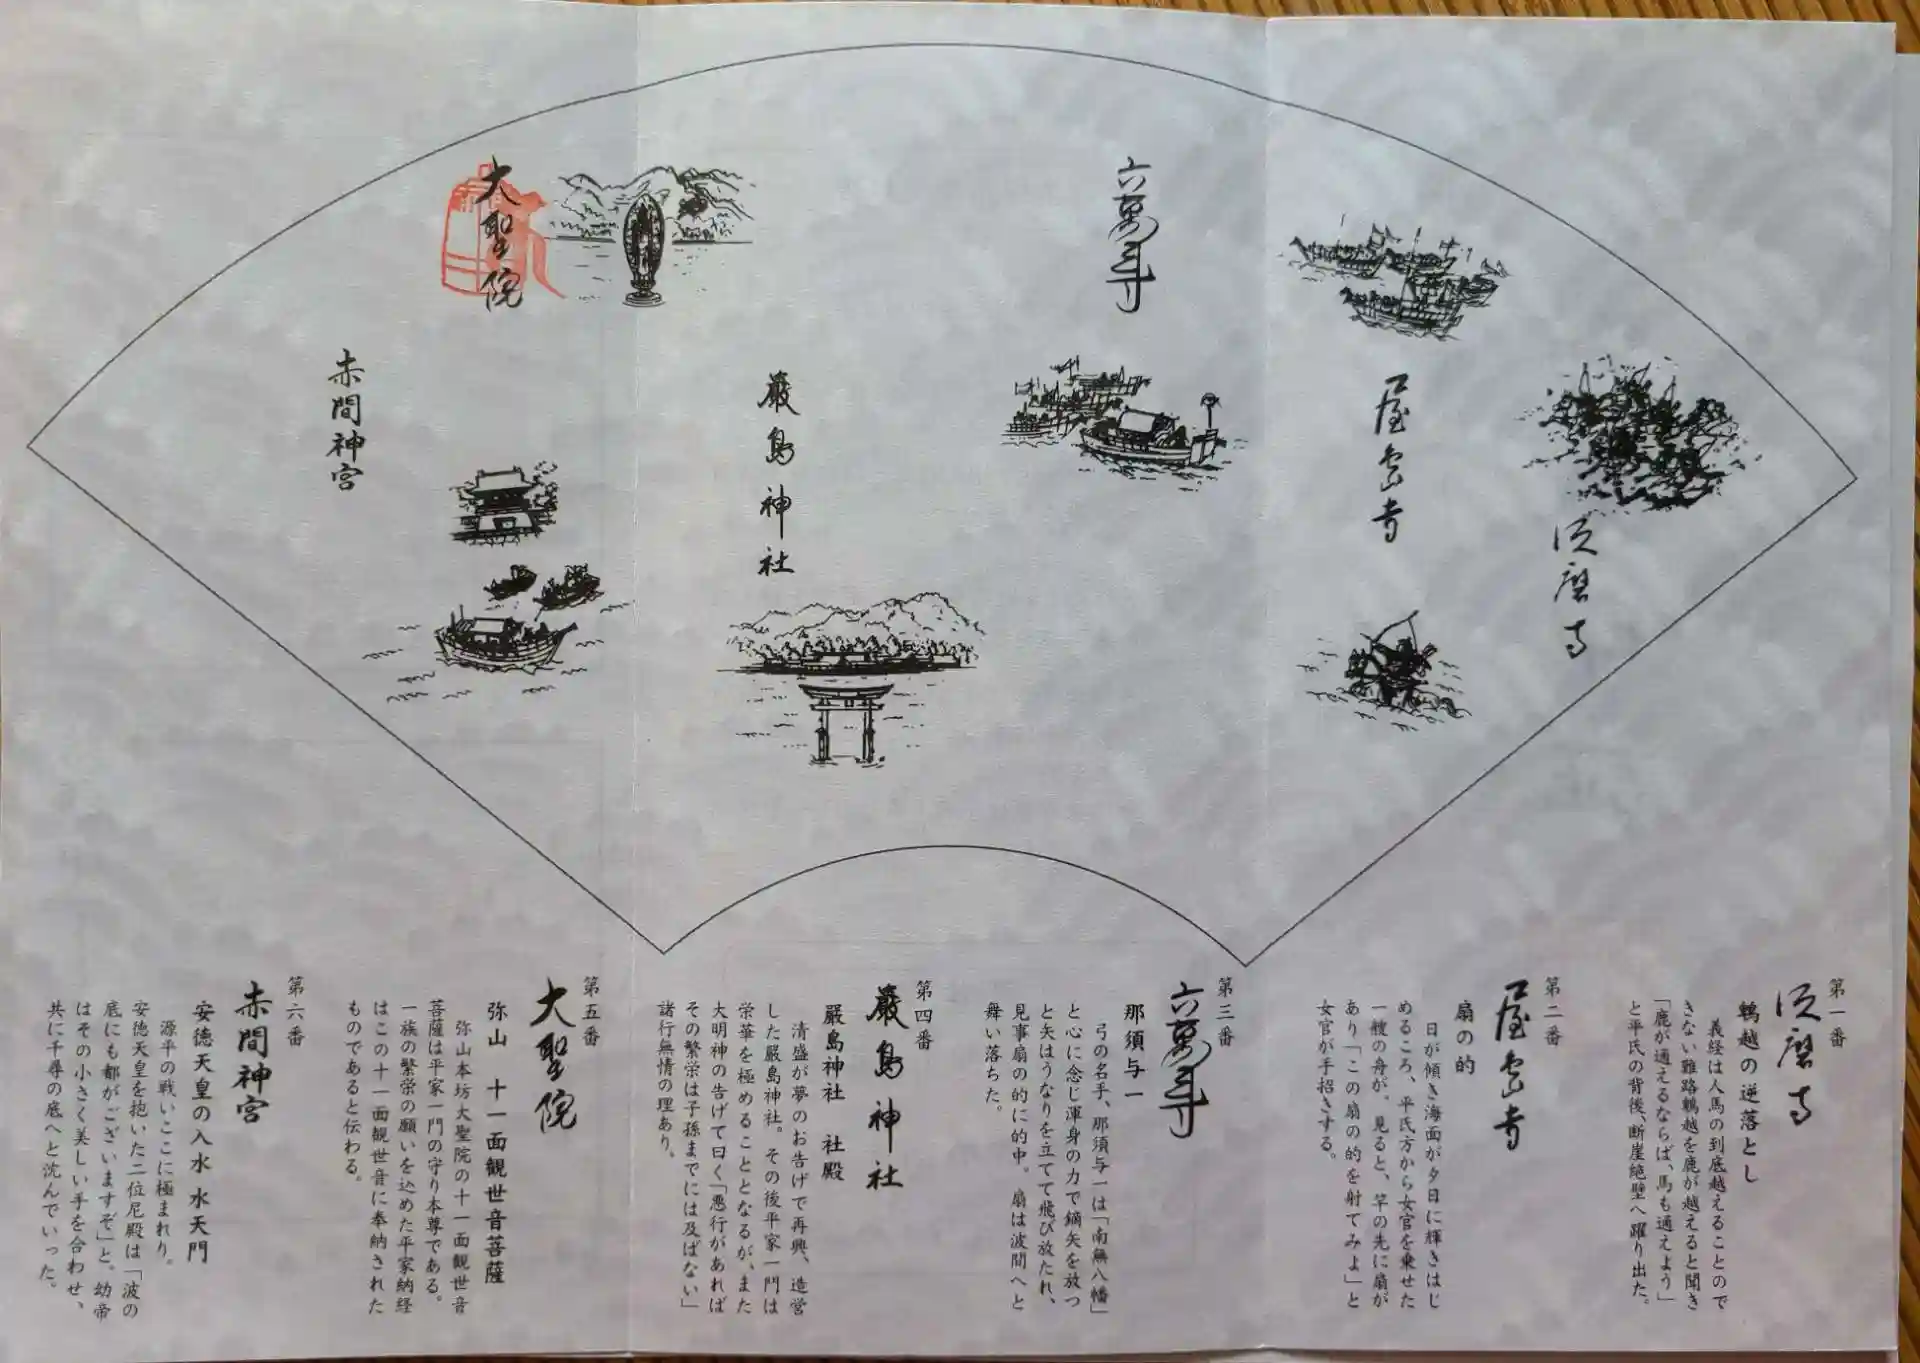 須磨寺
屋島寺
六萬寺
嚴島神社
大聖院
赤間神宮
第一番
須磨寺
鵯越の逆落とし
義経は人馬の到底越えることので
きない難路鵯越を鹿が越えると聞き
「鹿が通えるならば、馬も通えよう」
と平氏の背後、断崖絶壁へ躍り出た。
第二番
屋島寺
扇の的
日が傾き海面が夕日に輝きはじ
めるころ、平氏方から女官を乗せた
一艘の舟が。見ると、竿の先に扇が
あり「この扇の的を射てみよ」と
女官が手招きする。
第三番
六萬寺
那須与一
弓の名手、那須与一は「南無八幡」
と心に念じ渾身の力で鏑矢を放つ
と矢はうなりを立てて飛び放たれ、
見事扇の的に的中。扇は波間へと
舞い落ちた。
第四番
嚴島神社
嚴島神社 社殿
清盛が夢のお告げで再興、造営
した嚴島神社。その後平家一門は
栄華を極めることとなるが、また
大明神の告げて曰く「悪行があれば
その繁栄は子孫までには及ばない」
諸行無情の理あり。
第五番
大聖院
弥山 十一面観世音菩薩
弥山本坊大聖院の十一面観世音
菩薩は平家一門の守り本尊である。
一族の繁栄の願いを込めた平家納経
はこの十一面観世音に奉納された
ものであると伝わる。
第六番
赤間神宮
安徳天皇の入水 水天門
源平の戦いここに極まれり。
安徳天皇を抱いた二位尼殿は「波の
底にも都がございますぞ」と。幼帝
はその小さく美しい手を合わせ、
共に千尋の底へと沈んでいった。